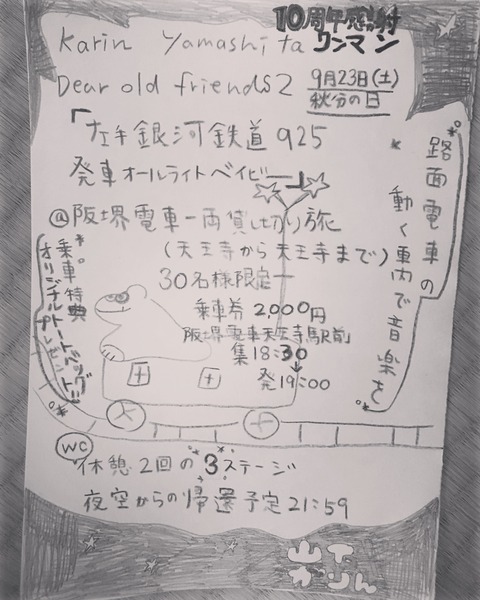 10周年感謝
Karin Yamashita ワンマン
Dear old friends 2
9月23日(土)
秋分の日
「左手銀河鉄道925
発車オールライトベイビー」
@阪堺電車一両貸し切り旅
(天王寺から天王寺まで)
30名様限定
乗車券 2,000円
阪堺電車天王寺駅前
集18:30
発19:00
路面電車の
動く車内で音楽を
乗車特典
オリジナルトートバッグ
プレゼント!!
WC
休憩2回の3ステージ
夜空からの帰還予定21:59
山下
かりん